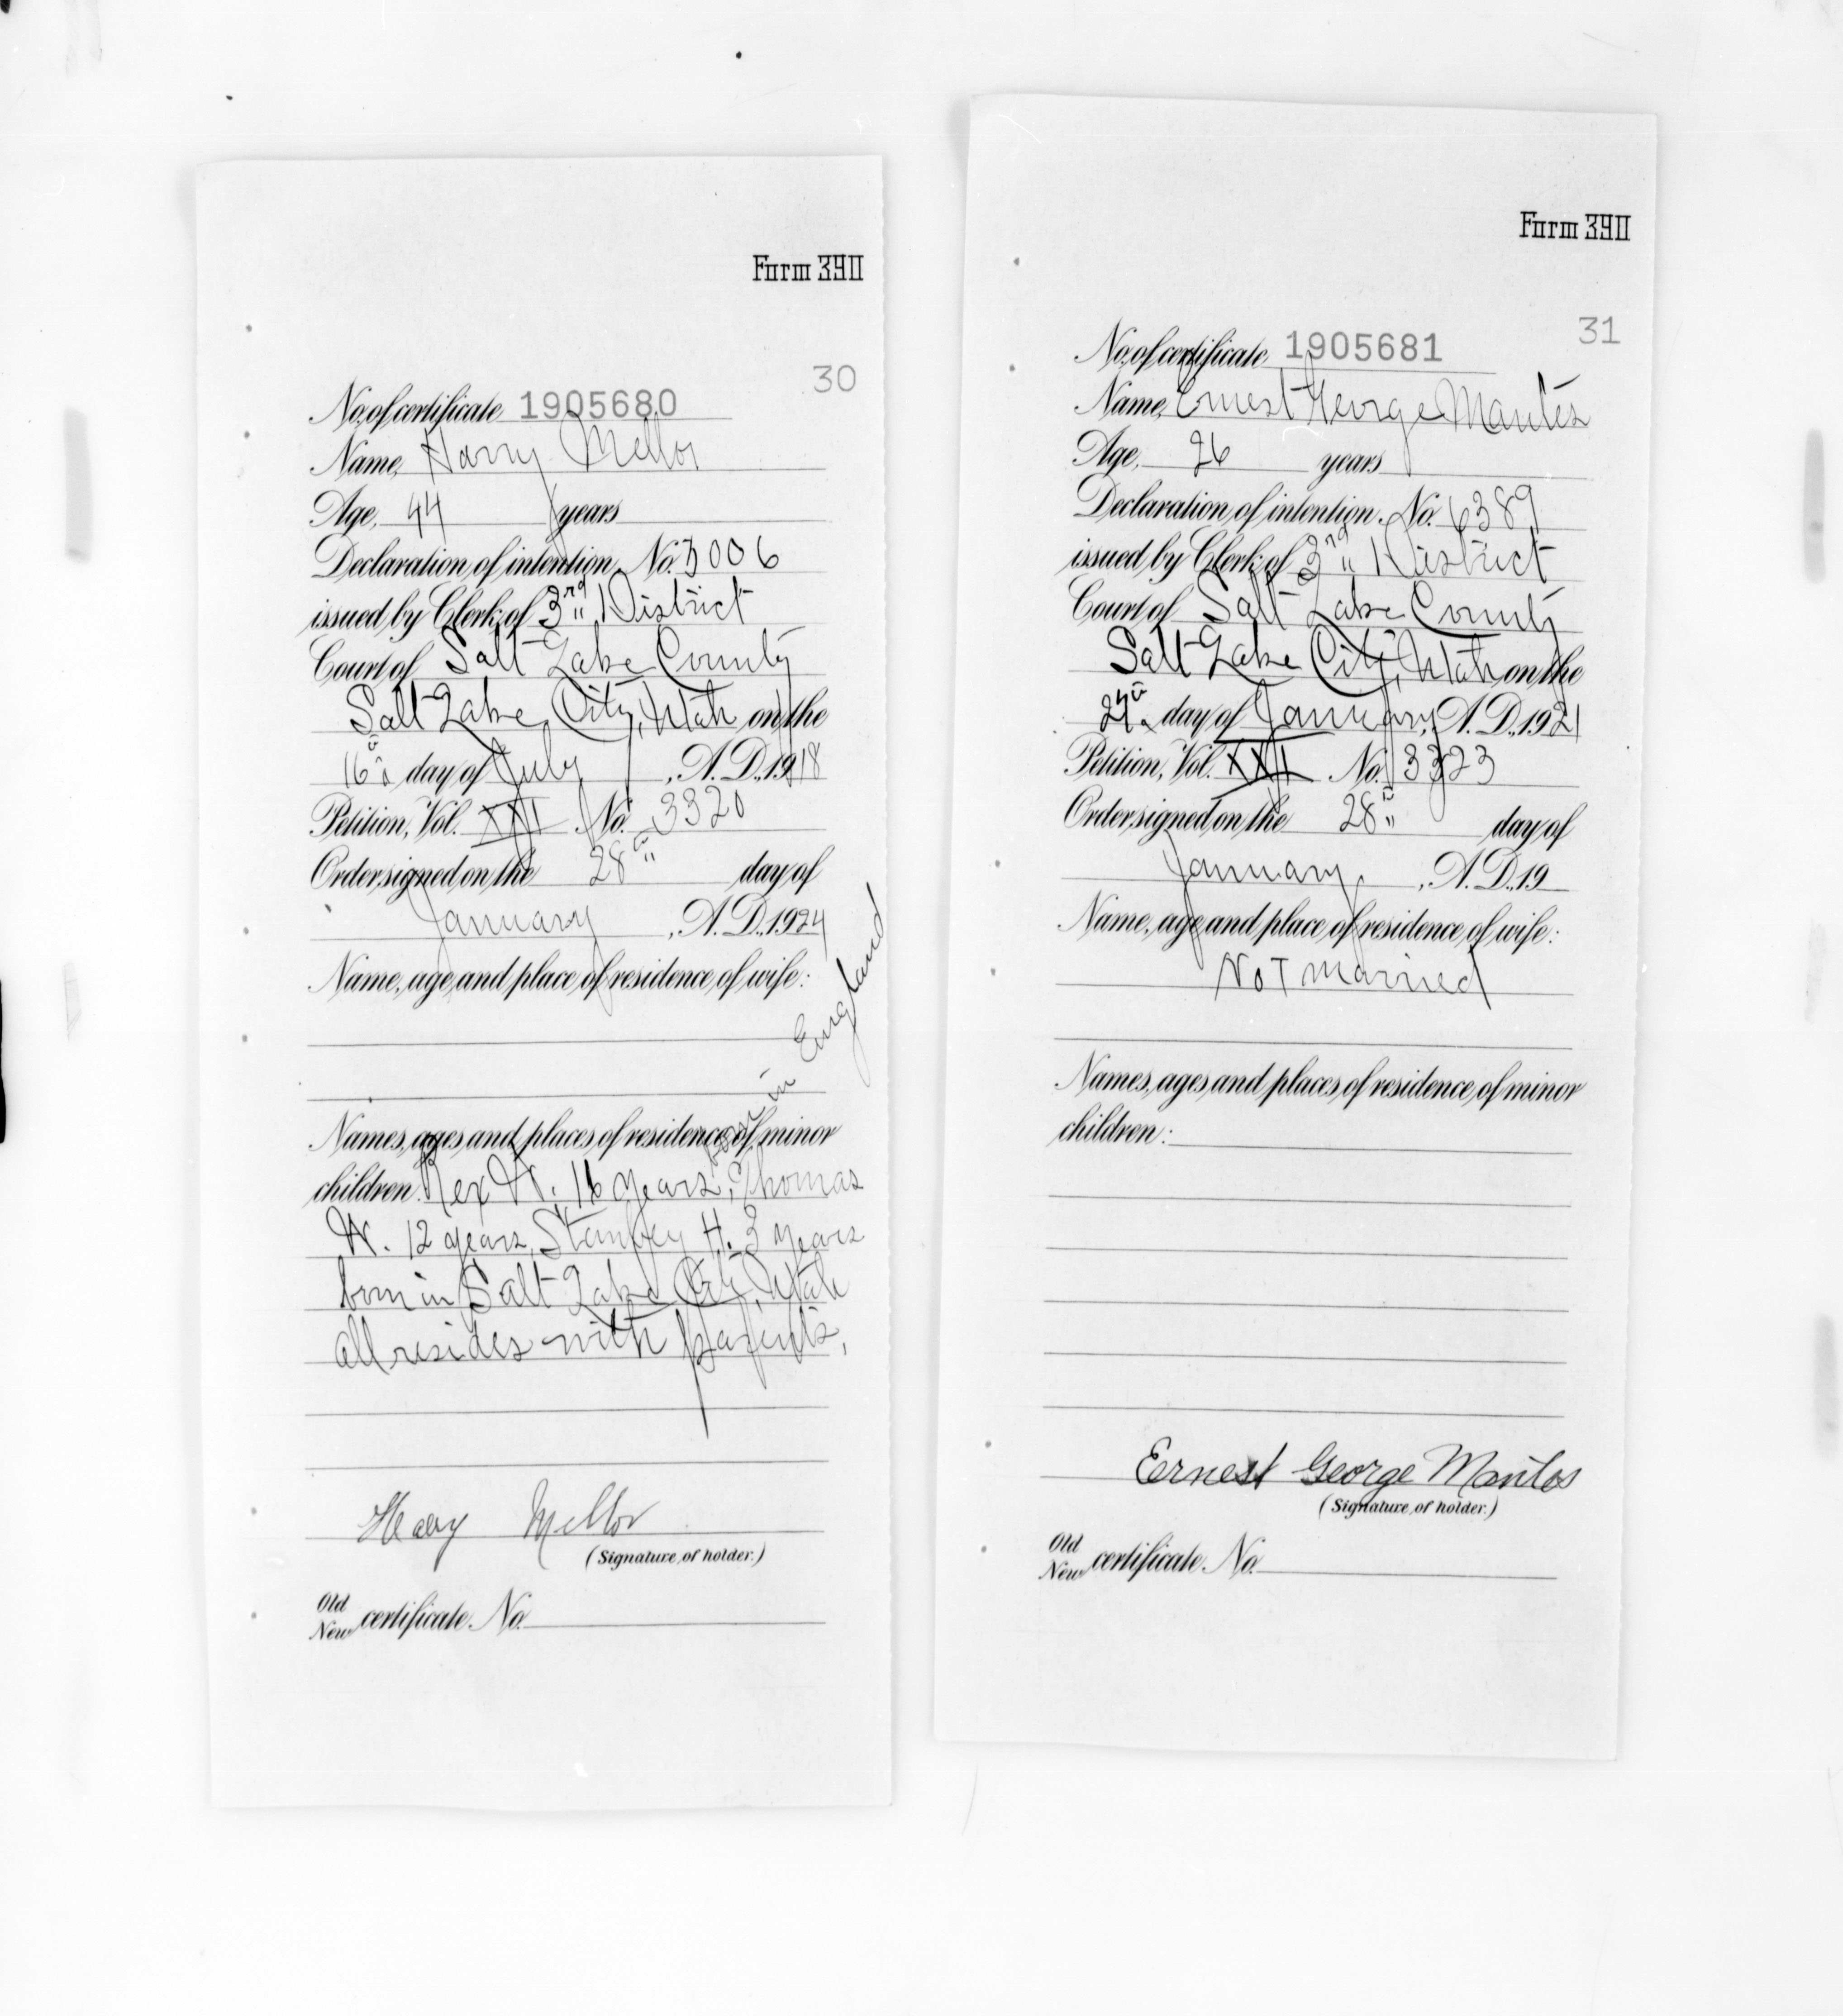 Form 390
30
No. of certificate 1905680
Name, Harry Mellor
Age, 44 years
Declaration of intention, No. 5006
issued by Clerk of 3rd " District
Court of Salt Lake County
Salt Lake City, Utah on the
16th day of July, A. D., 1918
Petition, Vol. XXII No. 3320
Order signed on the 28th day of
January, A. D., 1924
Name, age and place of residence of wife:
Names, ages and places of residence of minor
children: Rex W. 16 years, Thomas
in England
W. 12 years, Stanley H. 3 years
born in Salt Lake City, Utah
all resides with parents,
Harry Mellor
(Signature of holder.)
Old
New certificate No.
Form 390
31
No. of certificate, 1905681
Name, Ernest George Mantes
Age, 26 years
Declaration of intention, No. 6389
issued by Clerk of 3rd " District
Court of Salt Lake County
Salt Lake City, Utah on the
day of January, A. D., 1921
Petition, Vol. XXII No. 3323
Order signed on the 28th day of
January, A. D., 19
Name, age and place of residence of wife:
Not Married
Names, ages and places of residence of minor
children:
Ernest George Mantes
(Signature of holder.)
Old
New certificate No.